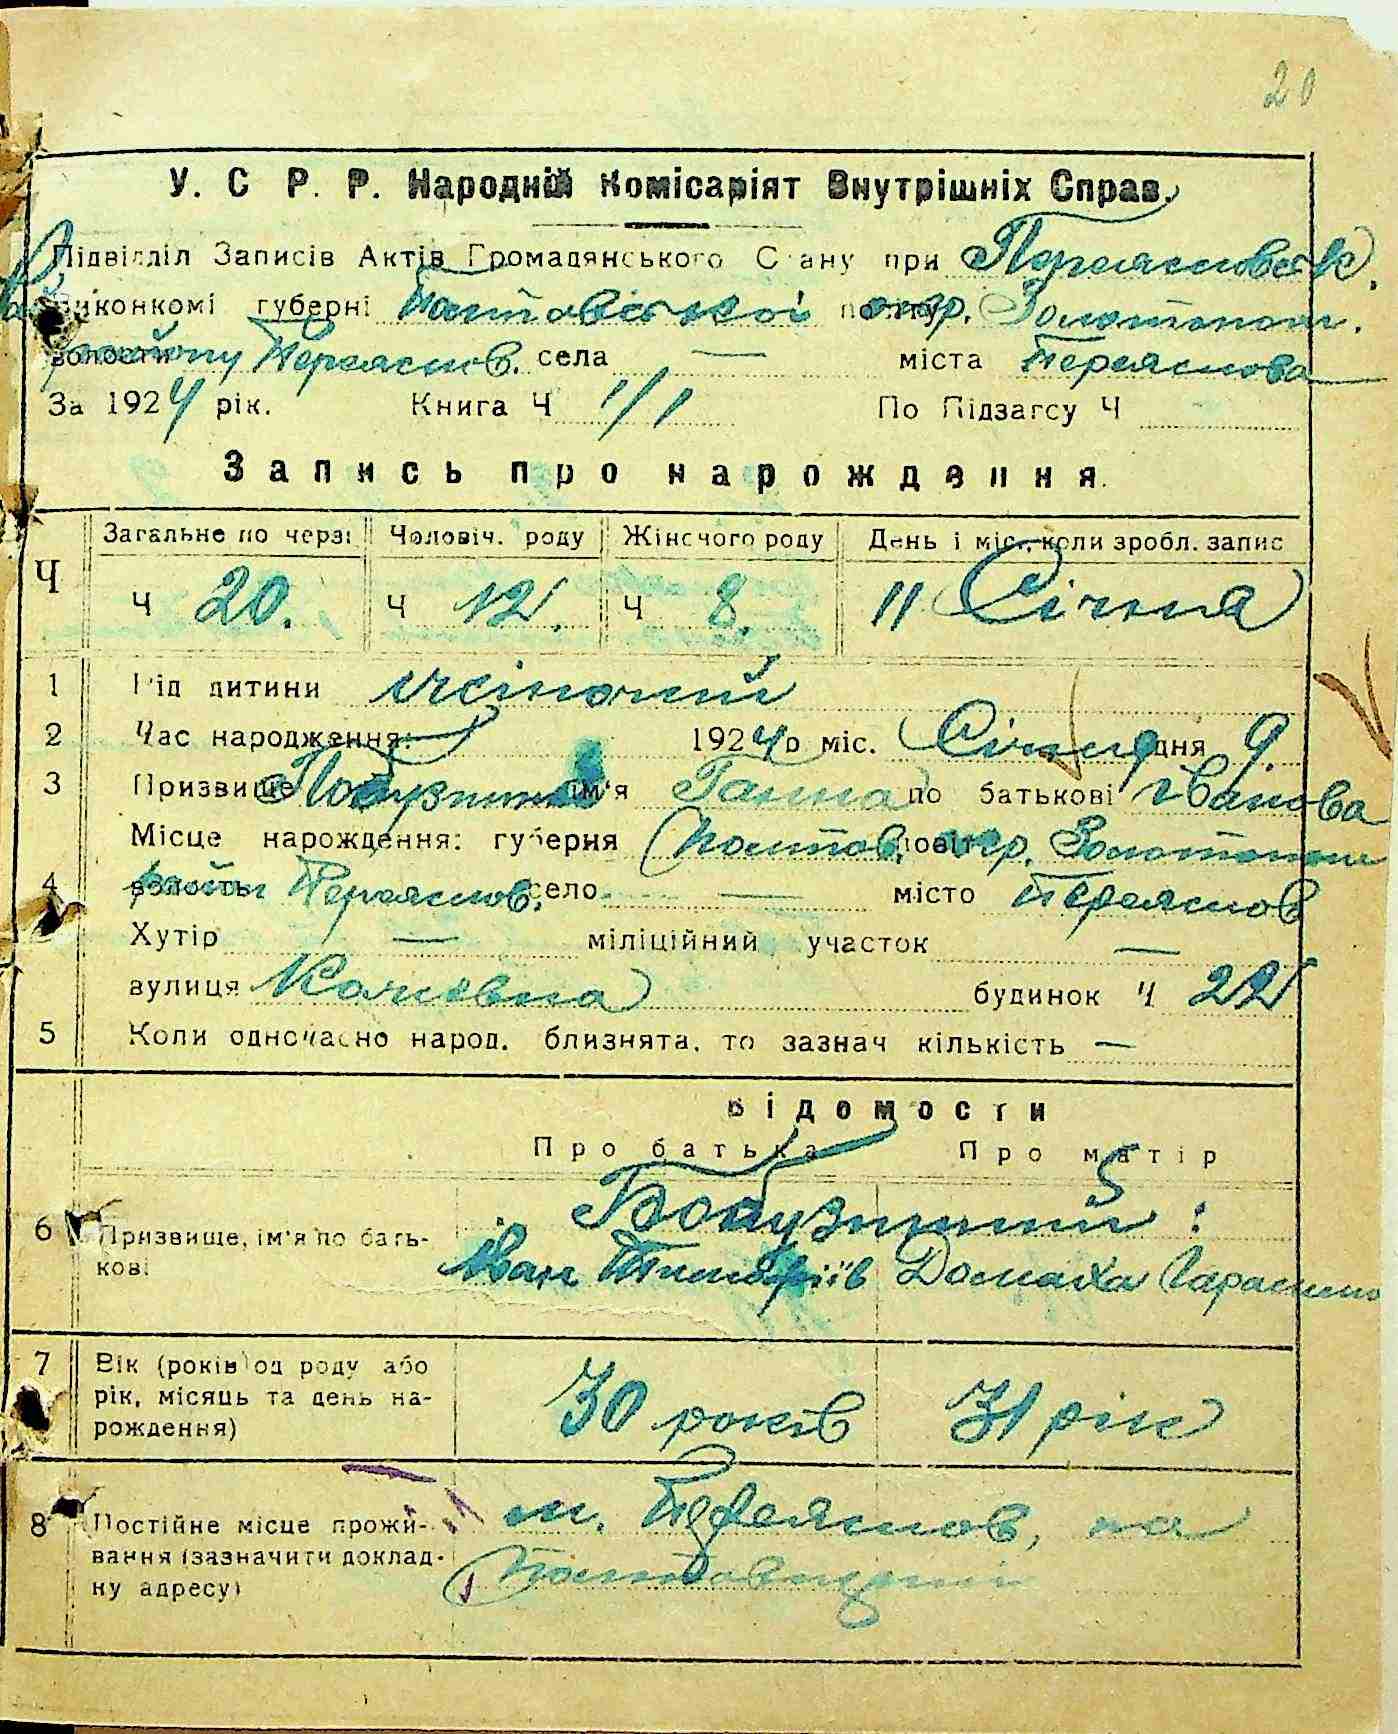 20
У. С. Р. Р. Народній Комісаріят Внутрішніх Справ.
Підвідділ Записів Актів Громадянського Стану при Переяславськ.
Виконкомі губерні Полтавської окр. Золотонош.
району Переяслов. села — міста Переяслова
За 1924 рік. Книга Ч 1/1 По Підзагсу Ч
Запись про нарождення.
Ч Загальне по черзі Чоловіч. роду Жіночого роду День і міс., коли зробл. запис
Ч 20. Ч 12. Ч 8. 11 Січня
1 Рід дитини жіночий
2 Час народження: 1924 р міс. Січня дня 9.
3 Призвище ім'я Ганна по батькові Іванова
Місце нарождення: губерня Полтов. повіт окр. Золотонош
4 волость район Переяслов. село — місто Переяслов
Хутір — міліційний участок —
вулиця будинок Ч 22
5 Коли одночасно народ. близнята, то зазнач кількість —
Відомости
Про батька Про матір
6 Призвище, ім'я по бать-
кові
Іван Домаха Гарасимо
7 Вік (років од роду або
рік, місяць та день на-
рождення)
30 років 31 рік
8 Постійне місце прожи-
вання (зазначити доклад-
ну адресу)
м. Переяслов, на
Полтавщині